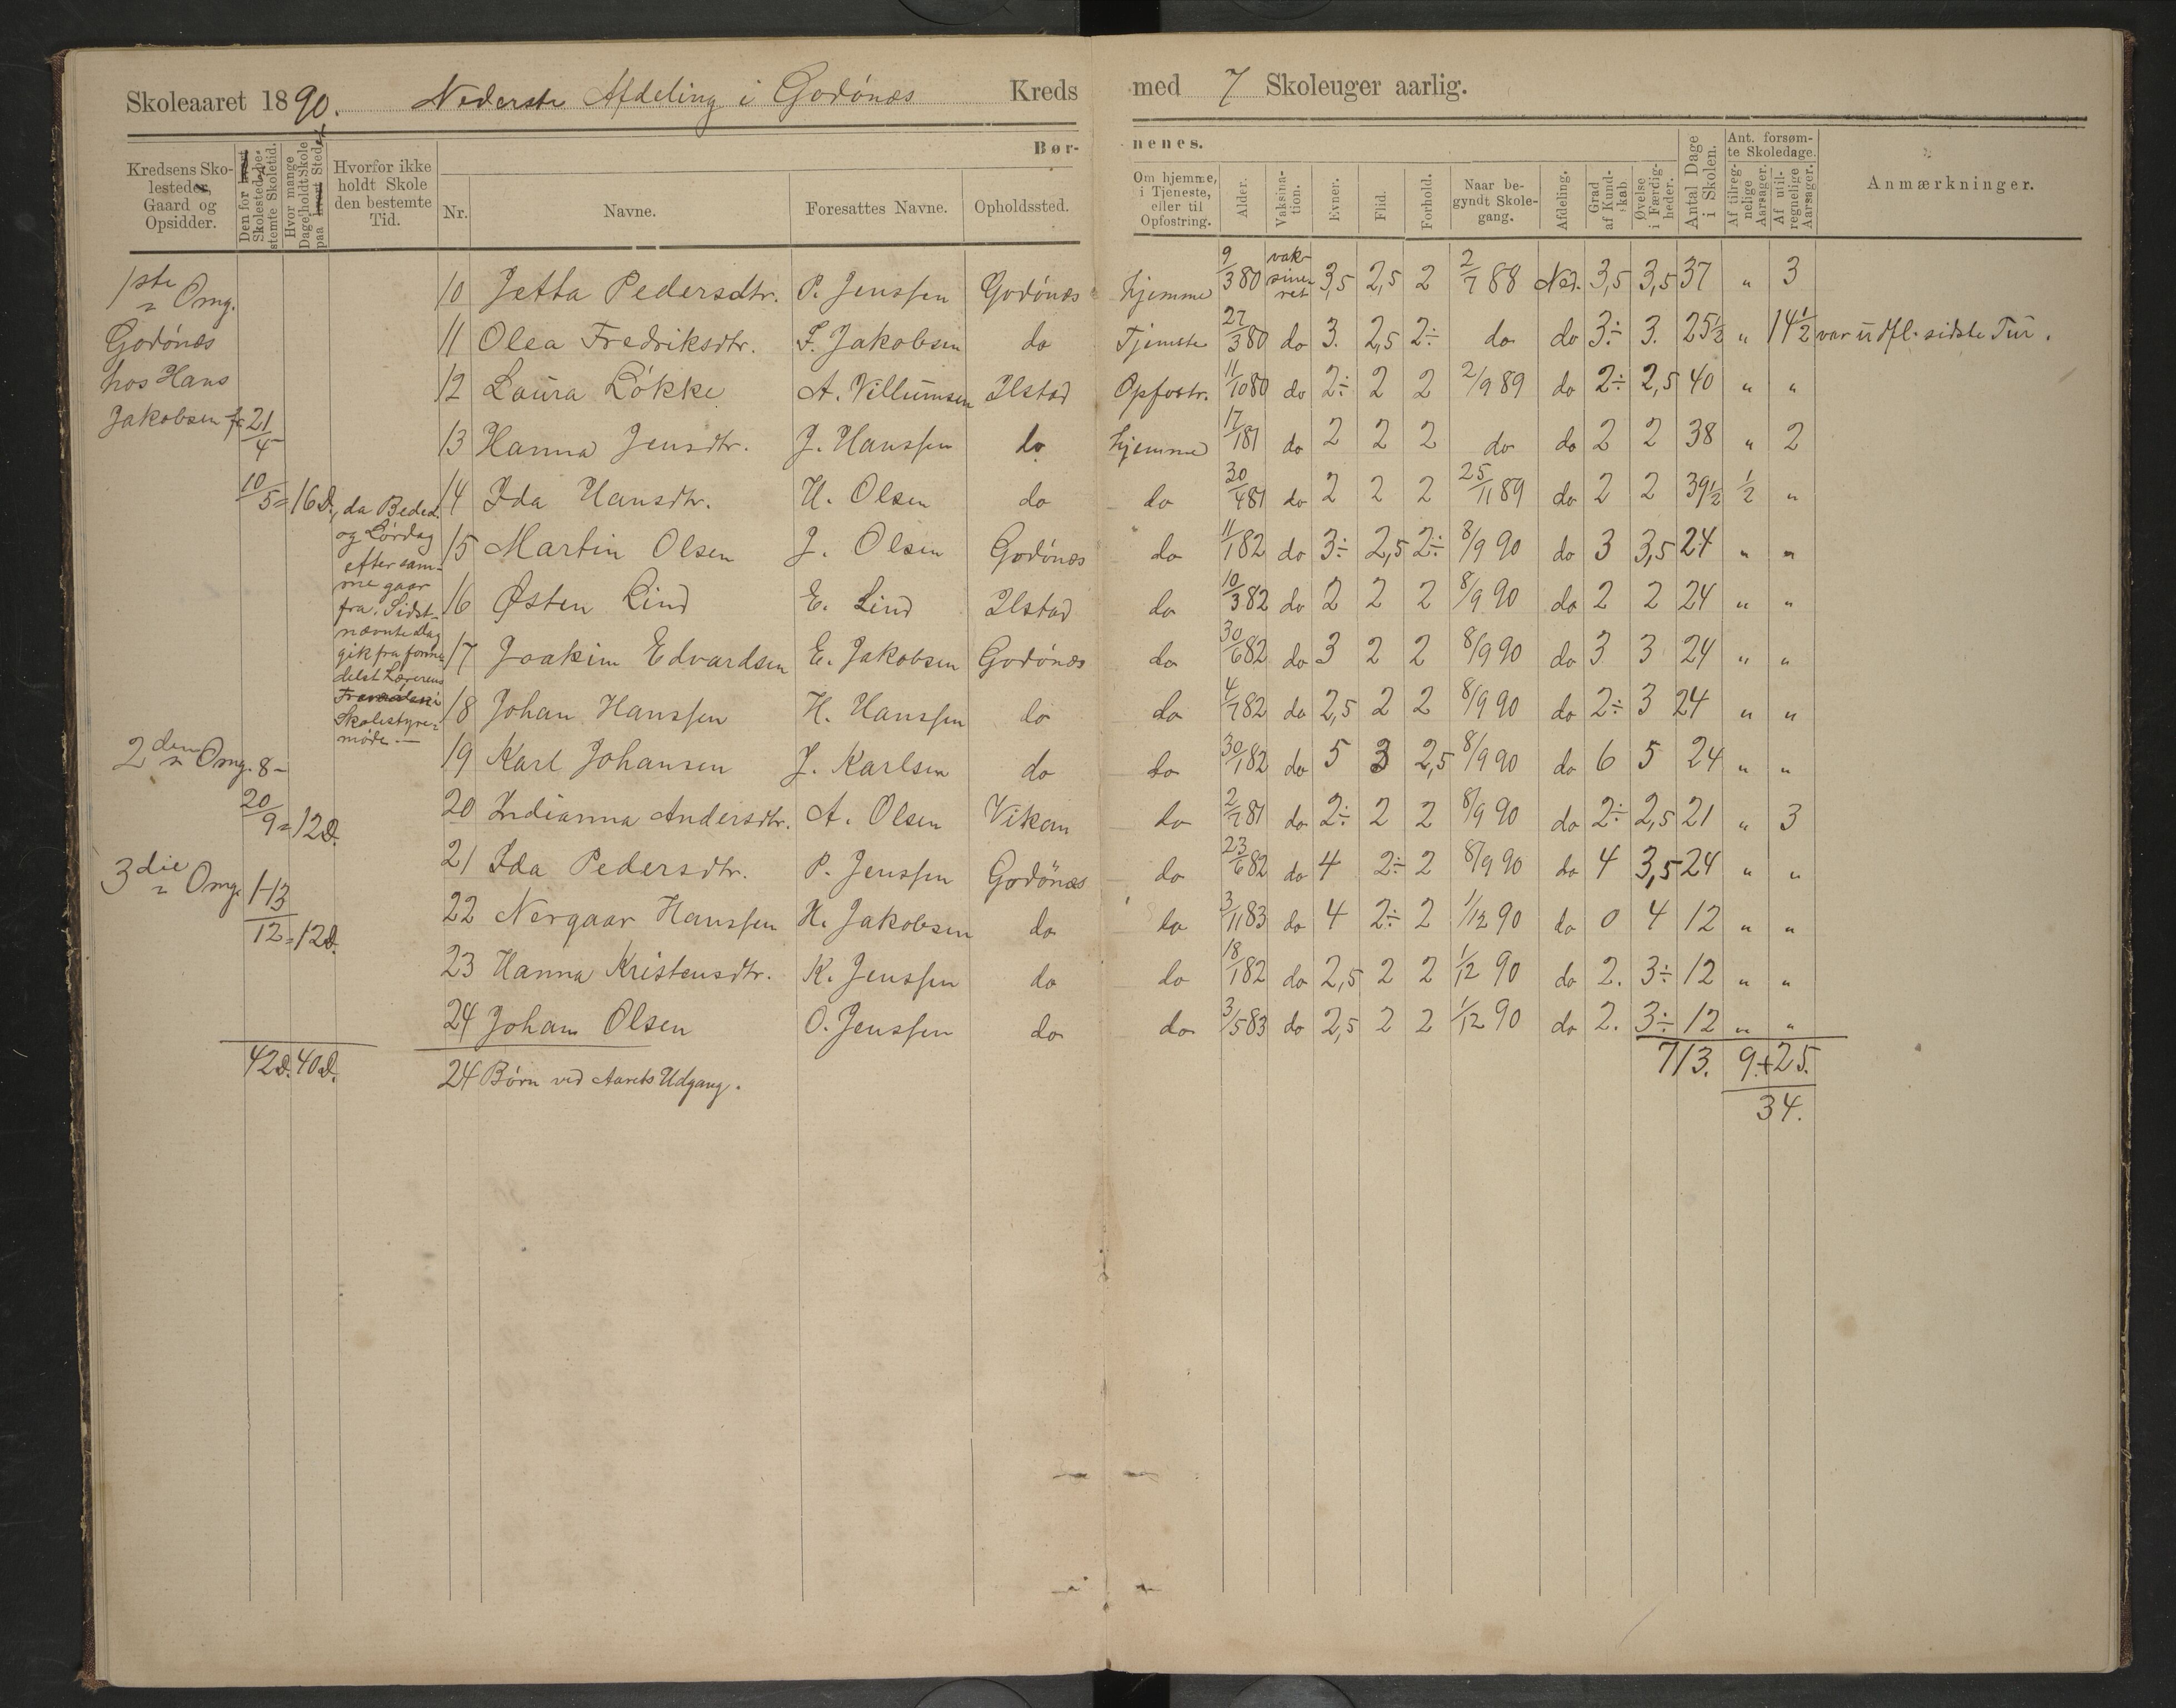 Skoleaaret 1890. Nederste Afdeling i Godønæs Kreds med 7 Skoleuger aarlig.
Børnenes.
Kredsens Skolesteder, Gaard og Opsidder.
Den for hvert Skolested bestemte Skoletid.
Hvor mange Dage holdt Skole paa hvert Sted.
Hvorfor ikke holdt Skole den bestemte Tid.
Nr.
Navne.
Foresattes Navne.
Opholdssted.
Om hjemme, i Tjeneste, eller til Opfostring.
Alder.
Vaksination.
Evner.
Flid.
Forhold.
Naar begyndt Skolegang.
Afdeling.
Grad af Kundskab.
Øvelse i Færdigheder.
Antal Dage i Skolen.
Ant. forsømte Skoledage.
Af tilregnelige Aarsager.
Af utilregnelige Aarsager.
Anmærkninger.
1ste Omg.
Godønæs
hos Hans
Jakobsen fr 21/4
10/5 = 16 D., da Beded.
og Lørdag
efter sam-
me gaar
fra. Sidst-
nævnte Dag
gik fra forme-
delst Lærerens
Skolestyre-
møde. —
2den Omg. 8-
20/9 = 12 D.
3die Omg. 1-13
12 = 12 D.
42 D. 40 D.
10 Jetta Pedersdtr. P. Jenssen Godønæs hjemme 9/3 80 vaksineret 3,5 2,5 2 2/7 88 Ned. 3,5 3,5 37 " 3
11 Olea Fredriksdtr. F. Jakobsen do Tjeneste 27/3 80 do 3. 2,5 2÷ do do 3÷ 3. 25½ " 14½ var udfl. sidste Tur.
12 Laura Løkke A. Villumsen Ilstad Opfostr. 11/10 80 do 2÷ 2 2 2/9 89 do 2÷ 2,5 40 " "
13 Hanna Jensdtr. J. Hanssen do hjemme 17/1 81 do 2 2 2 do do 2 2 38 " 2
14 Ida Hansdtr. H. Olsen do do 30/4 81 do 2 2 2 25/11 89 do 2 2 39½ ½ "
15 Martin Olsen J. Olsen Godønæs do 11/1 82 do 3÷ 2,5 2÷ 8/9 90 do 3 3,5 24 " "
16 Østen Lind E. Lind Ilstad do 10/3 82 do 2 2 2 8/9 90 do 2 2 24 " "
17 Joakim Edvardsen E. Jakobsen Godønæs do 30/6 82 do 3 2 2 8/9 90 do 3 3 24 " "
18 Johan Hanssen H. Hanssen do do 4/7 82 do 2,5 2 2 8/9 90 do 2÷ 3 24 " "
19 Karl Johansen J. Karlsen do do 30/1 82 do 5 3 2,5 8/9 90 do 6 5 24 " "
20 Indianna Andersdtr. A. Olsen Vikan do 2/7 81 do 2÷ 2 2 8/9 90 do 2÷ 2,5 21 " 3
21 Ida Pedersdtr. P. Jenssen Godönæs do 23/6 82 do 4 2÷ 2 8/9 90 do 4 3,5 24 " "
22 Nergaar Hanssen H. Jakobsen do do 3/11 83 do 4 2÷ 2 1/12 90 do 0 4 12 " "
23 Hanna Kristensdtr. K. Jenssen do do 18/1 82 do 2,5 2 2 1/12 90 do 2. 3÷ 12 " "
24 Johan Olsen O. Jenssen do do 3/5 83 do 2,5 2 2 1/12 90 do 2. 3÷ 12 " "
24 Børn ved Aarets Udgang.
713. 9.+25.
34.